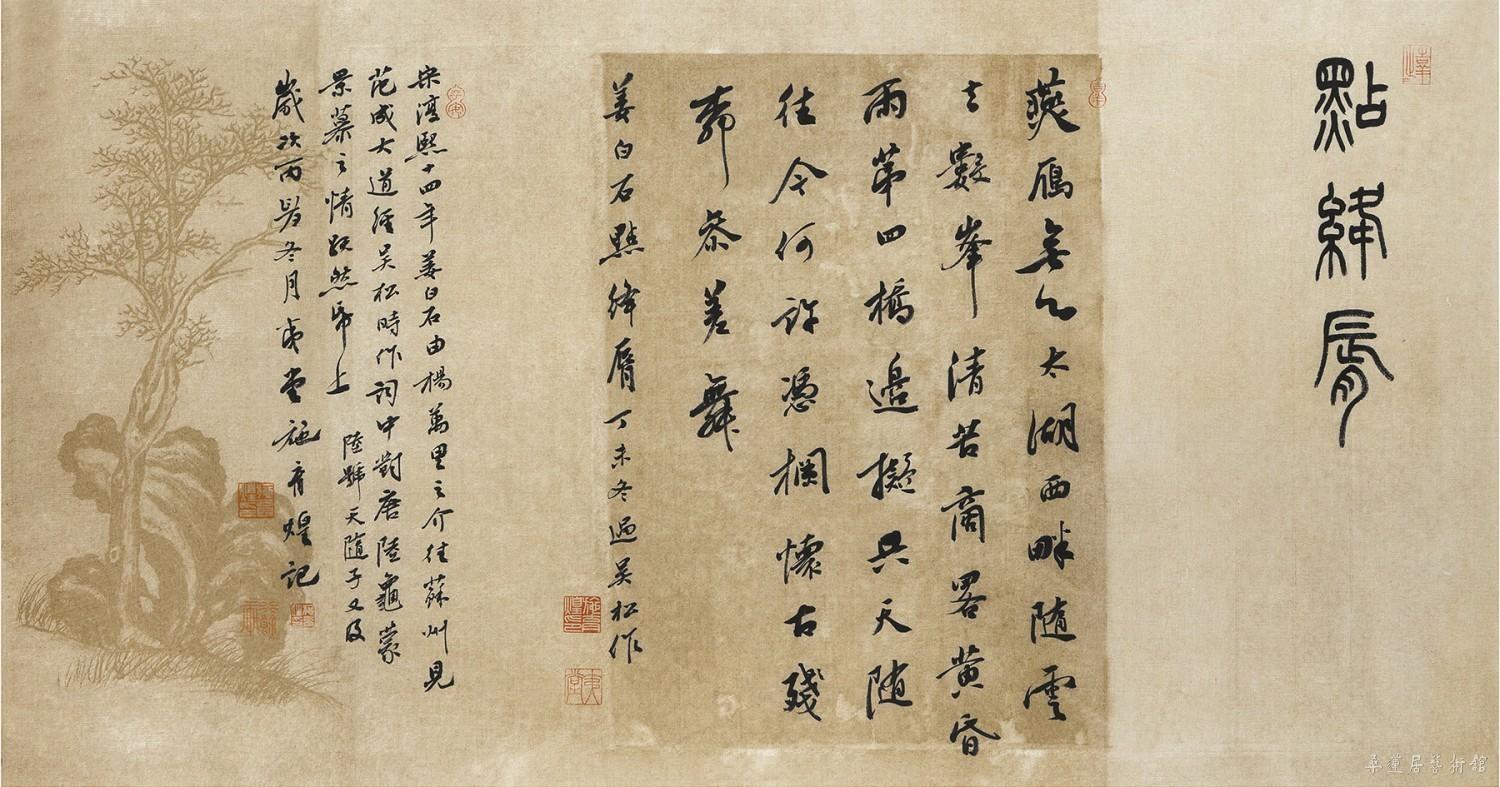 點絳脣
燕鴈無心太湖西畔随雲
去數峯清苦商畧黄昏
雨第四橋邊擬共天随
住今何許憑欄懷古殘
栁叅差舞
姜白石點絳脣丁未冬過吳松作
宋淳熙十四年姜白石由楊萬里之介往蘇州見
范成大道經吳松時作詞中對唐陸龜蒙
景慕之情躍然帋上 陸號天隨子又及
歲次丙冬月夷堂施育煌記
施育煌印
夷堂
桑蓮居藝術館